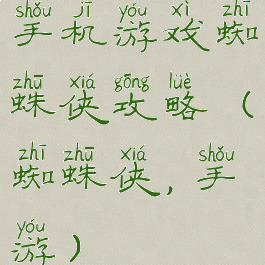 shǒu jī yóu xì zhī
手机游戏蜘
zhū xiá gōng lüè
蛛侠攻略（
zhī zhū xiá shǒu
蜘蛛侠,手
yóu
游）